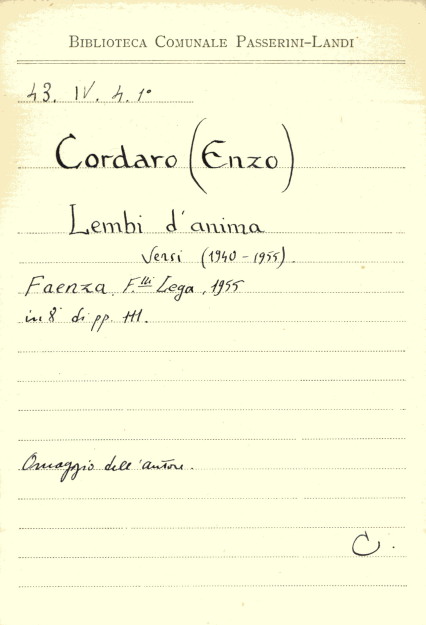 BIBLIOTECA COMUNALE PASSERINI-LANDI
43. IV. 4. 1°
Cordaro (Enzo)
Lembi d'anima
Versi (1940-1955).
Faenza. F.lli Lega, 1955
in 8° di pp. 111.
Omaggio dell'autore.
C.